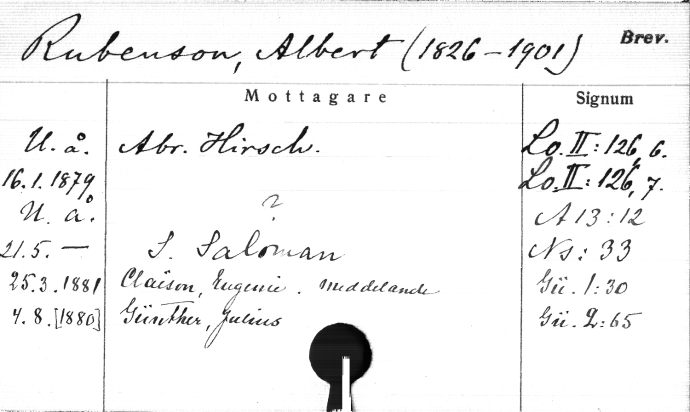 Rubenson, Albert (1826-1901) Brev.
Mottagare Signum
U. å. Abr. Hirsch. Lo. II: 126, 6.
16.1.1879 Lo. II: 126, 7.
U. å. ? A 13:12
21.5. — S. Saloman Ns: 33
25.3.1881 Claëson, Eugenie. Meddelande Gü. 1:30
4.8.[1880] Günther, Julius Gü. 2:65